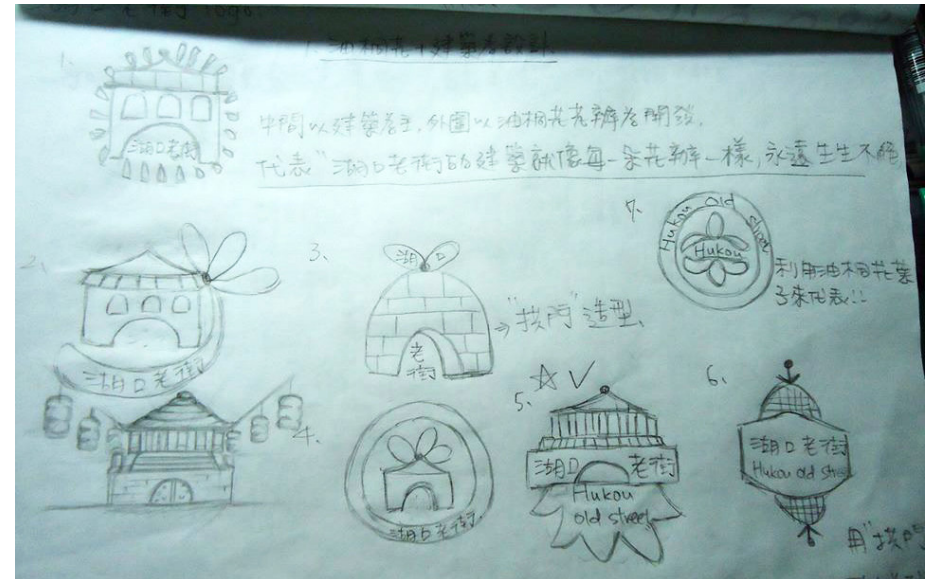 老街 logo.
1. 油桐花+建築為設計
湖口老街
中間以建築為主,外圍以油桐花花瓣為開發,
代表"湖口老街的建築就像每一朵花瓣一樣,永遠生生不絕
2、
湖口老街
3、
湖口
老
街
"拱門"造型、
7、
Hukou Old street
Hukou
利用油桐花葉
子來代表!!
4、
湖口老街
5、
湖口 老街
Hukou
old street
6、
湖口老街
Hukou old street
用"拱門